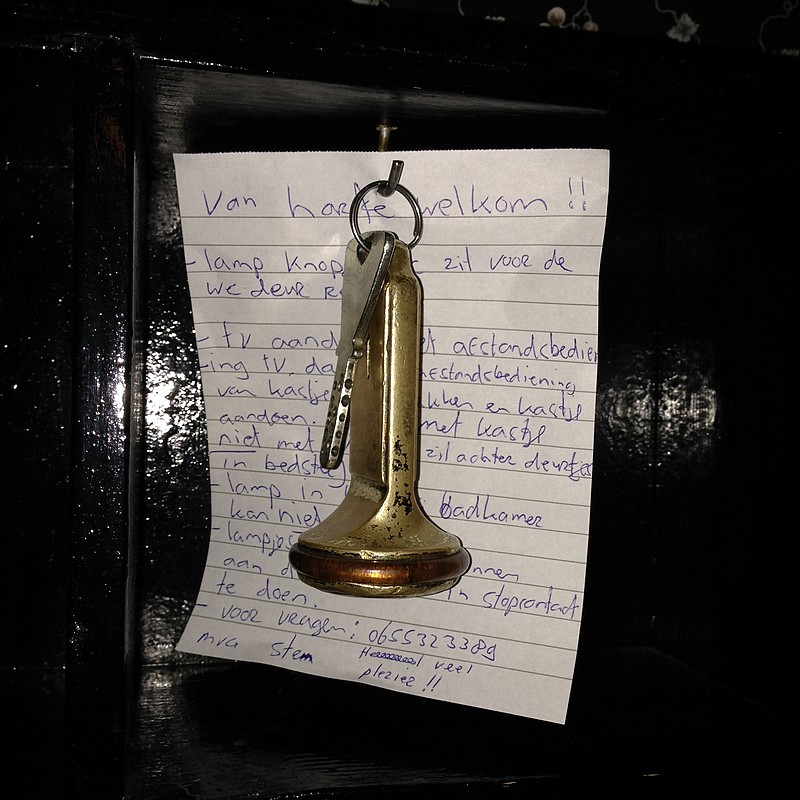 Van harte welkom !!
- lamp knop zit voor de
wc deur
- tv aand afstandsbedien
ing tv, da afstandsbediening
van kastje kken en kastje
aandoen. met kastje
niet met zit achter deurtjes
in bedstee
- lamp in badkamer
kan niet
- lampjes
aan d nnen
te doen. in stopcontact
- voor vragen: 0655323389
mvg Stem Heeeeeel veel
plezier !!